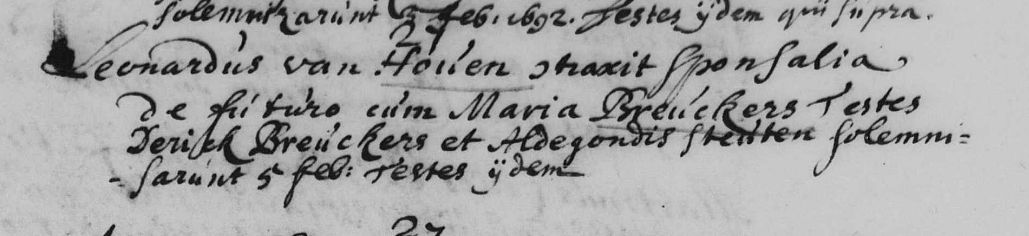 solemnizarunt 3 feb. 1692. Testes ijdem qui supra.
27
Leonardus van Houen ↄtraxit sponsalia
de futuro cum Maria Breuckers Testes
Derick Breuckers et Aldegondis steuten solemni=
-sarunt 5 feb: Testes ijdem
27